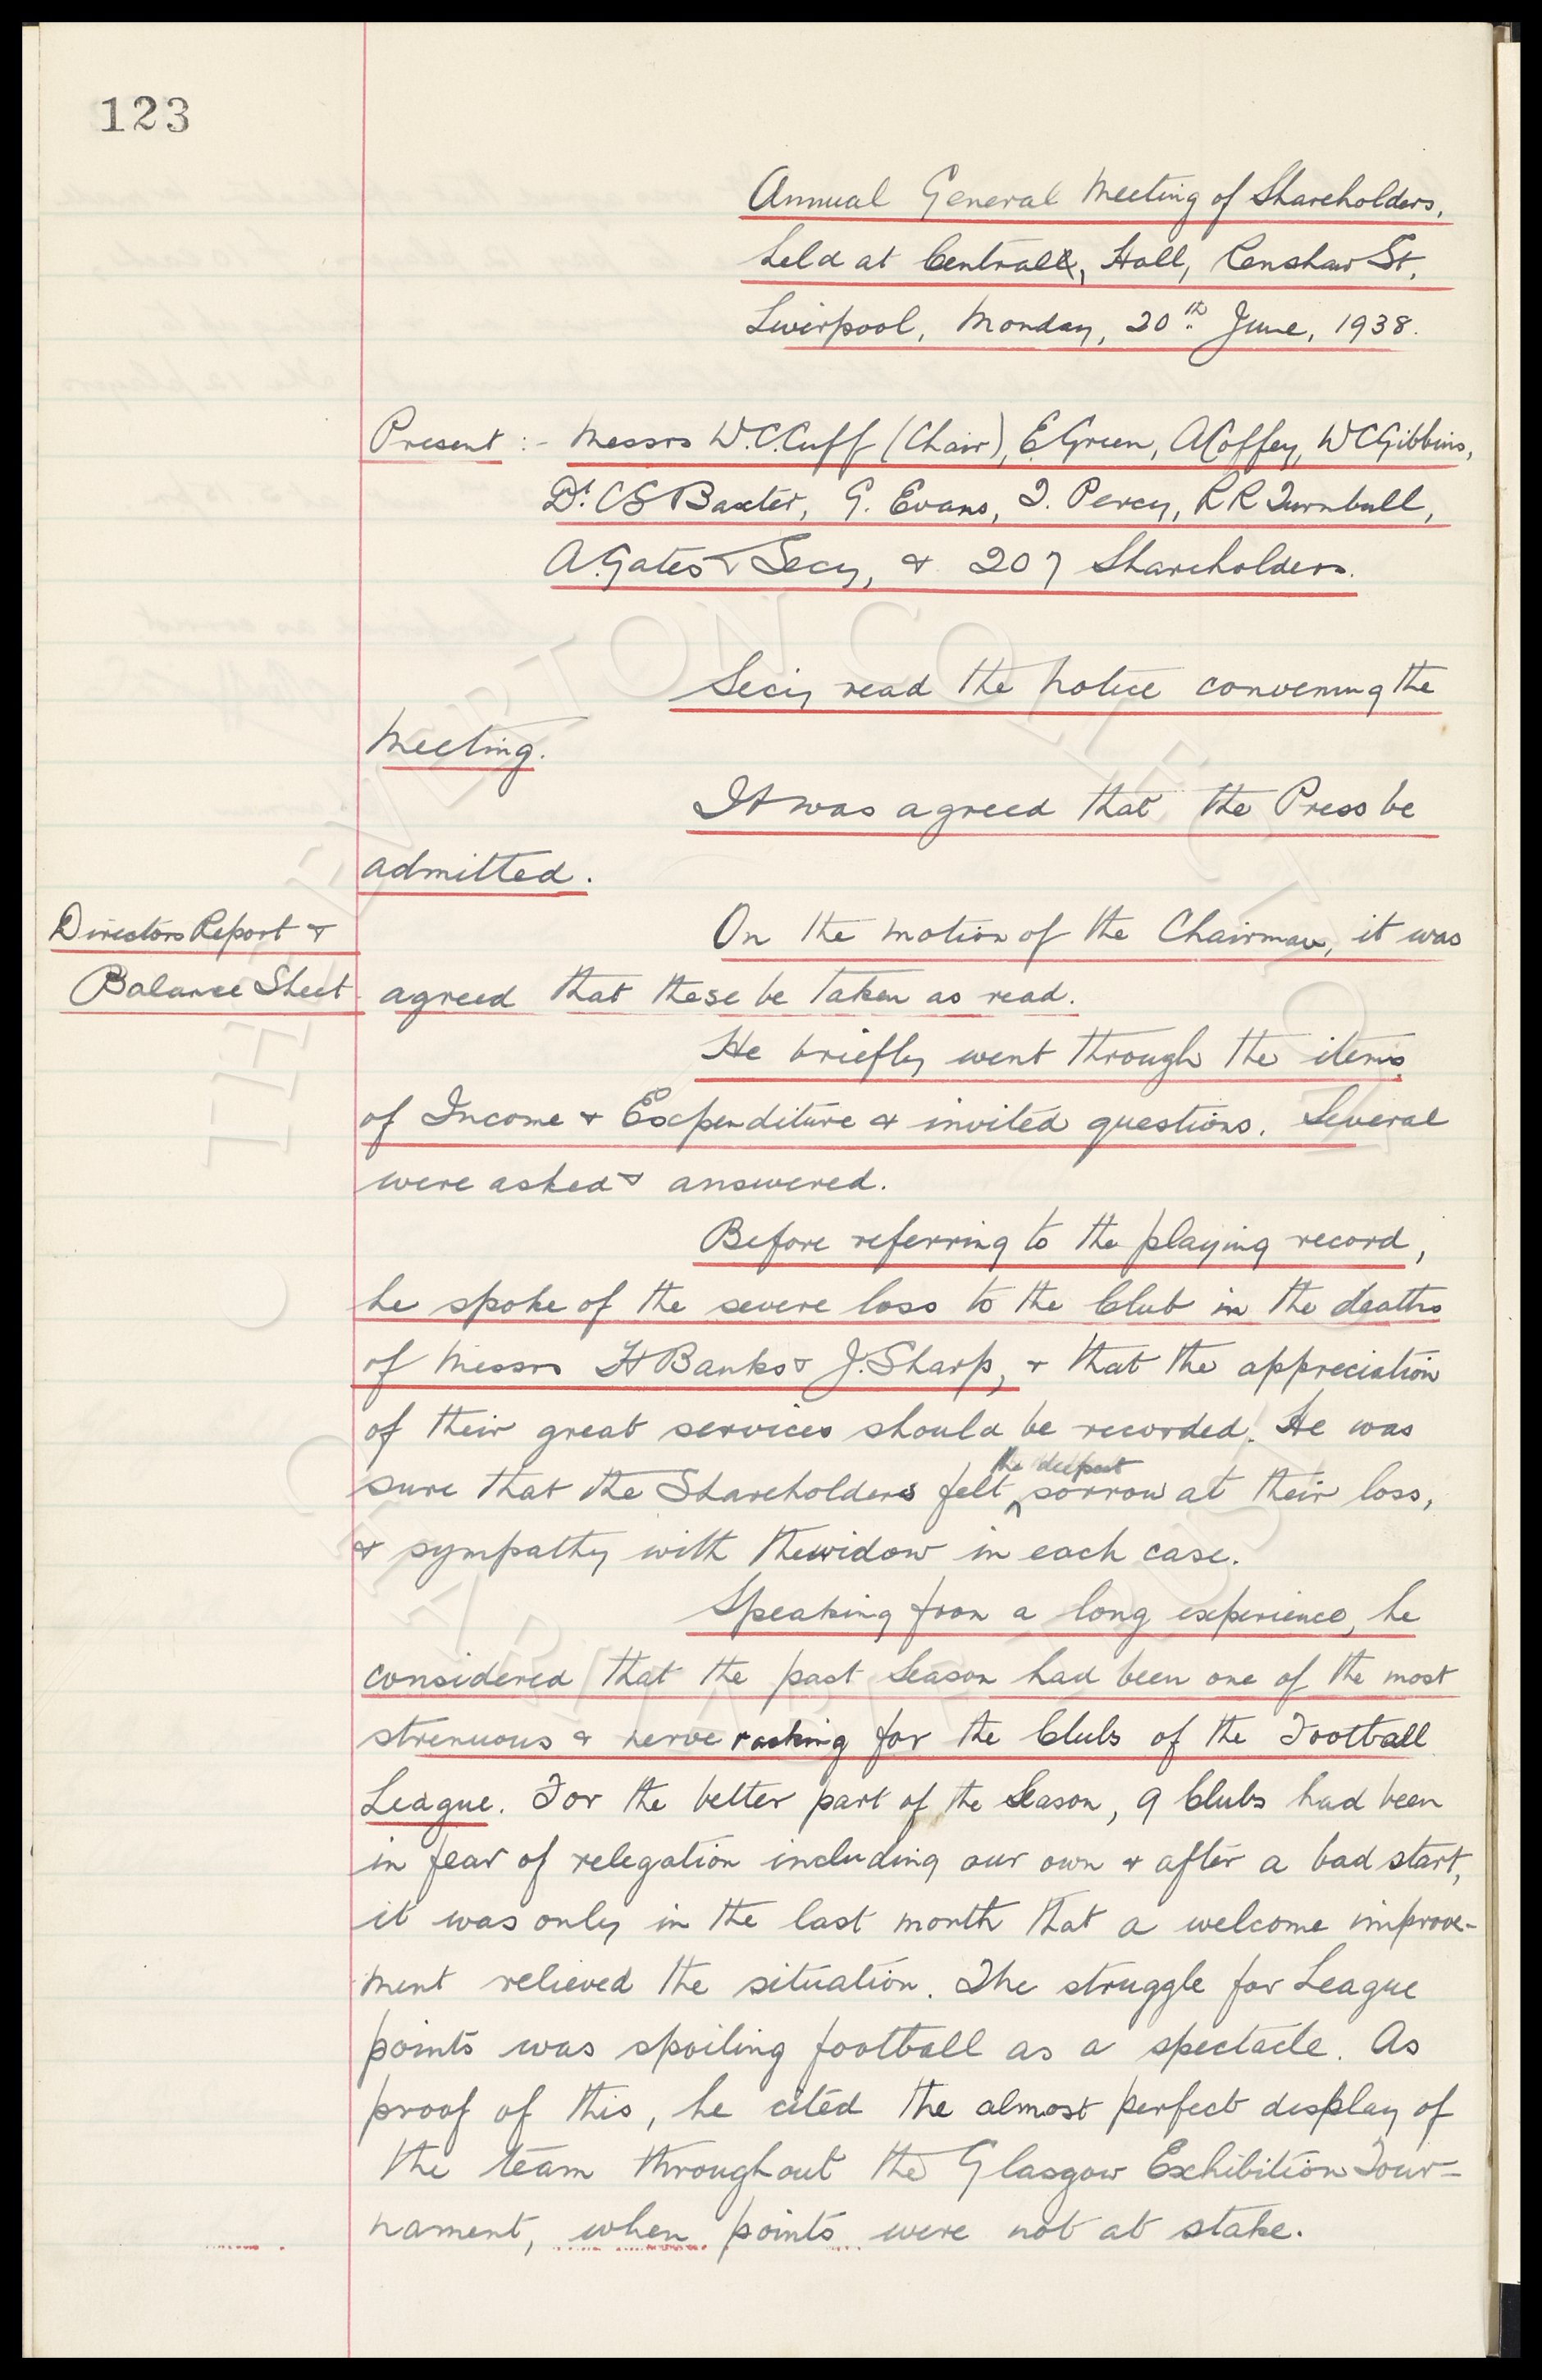 123
Annual General Meeting of Shareholders,
held at Central, Hall, Renshaw St,
Liverpool, Monday, 20th June, 1938.
Present :- Messrs W.C.Cuff (Chair), E.Green, A Coffey, W C Gibbins,
Dr. C S Baxter, G. Evans, T. Percy, R R Turnbull,
A.Gates & Secy, & 207 Shareholders.
Secy read the notice convening the
meeting.
It was agreed that the Press be
admitted.
Directors Report &
Balance Sheet
On the motion of the Chairman, it was
agreed that these be taken as read.
He briefly went through the items
of Income & Expenditure & invited questions. Several
were asked & answered.
Before referring to the playing record,
he spoke of the severe loss to the Club in the deaths
of Messrs H Banks & J. Sharp, & that the appreciation
of their great services should be recorded. He was
sure that the Shareholders felt the deepest sorrow at their loss,
& sympathy with the widow in each case.
Speaking from a long experience, he
considered that the past season had been one of the most
strenuous & nerve racking for the Clubs of the Football
League. For the better part of the Season, 9 Clubs had been
in fear of relegation including our own & after a bad start,
it was only in the last month that a welcome improve-
ment relieved the situation. The struggle for League
points was spoiling football as a spectacle. As
proof of this, he cited the almost perfect display of
the team throughout the Glasgow Exhibition Tour-
nament, when points were not at stake.